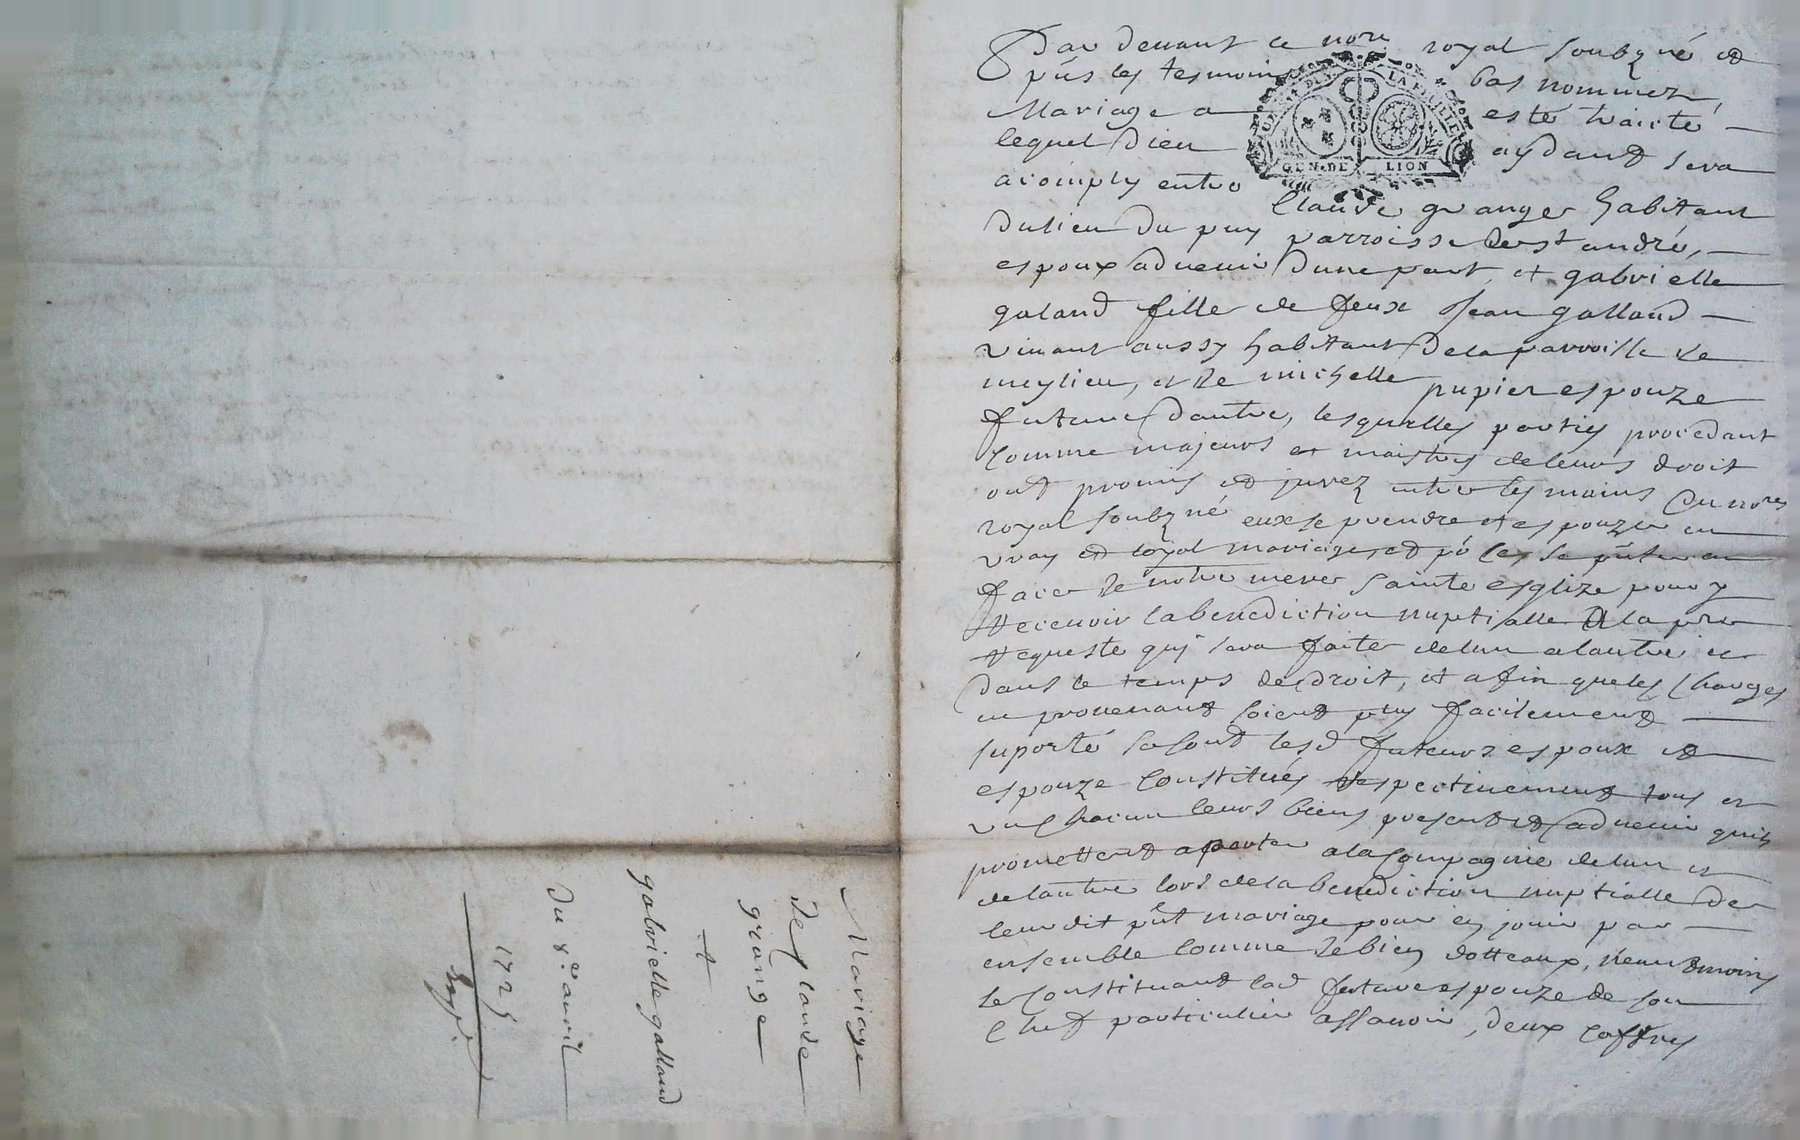 Par devant ce nore royal soubzné et
pñs les tesmoins bas nommez,
Mariage a esté traicté
lequel Dieu aydant sera
acomply entre
Claude granger habitant
du lieu du puy parroisse de st andré,
espoux advenir d'une part, et gabrielle
galand fille de feux Jean galland
vivant aussy habitant de la parroisse de
meylieu, et de michelle pupier espouze
future d'autre, lesquelles parties procedant
comme majeurs et maistres de leurs droit
ont promis et jurez entre les mains du nore
royal soubzné eux se prendre et espouzer en
vray et loyal mariage et
face de notre mere sainte esglize pour y
recevoir la benediction nuptialle a la pre
requeste quj sera faite de lun a lautre et
dans le temps de droit, et afin que les charges
en provenant soient plus facilement
suporté se sont lesd futeurs espoux et
espouze constitués respectivement tous et
un chacun leurs biens present et advenir quils
promettent aporter a la compagnie de lun et
de lautre lors de la benediction nuptialle de
leur dit pñt mariage pour en jouir par
ensemble comme de bien dotteaux, neant moins
se constituant lad future espouze de son
chef particulier assavoir, deux coffres
LA FEUILLE
GEN. DE LION
Mariage
de Claude
grange
et
gabrielle galland
du 8e avril
1725